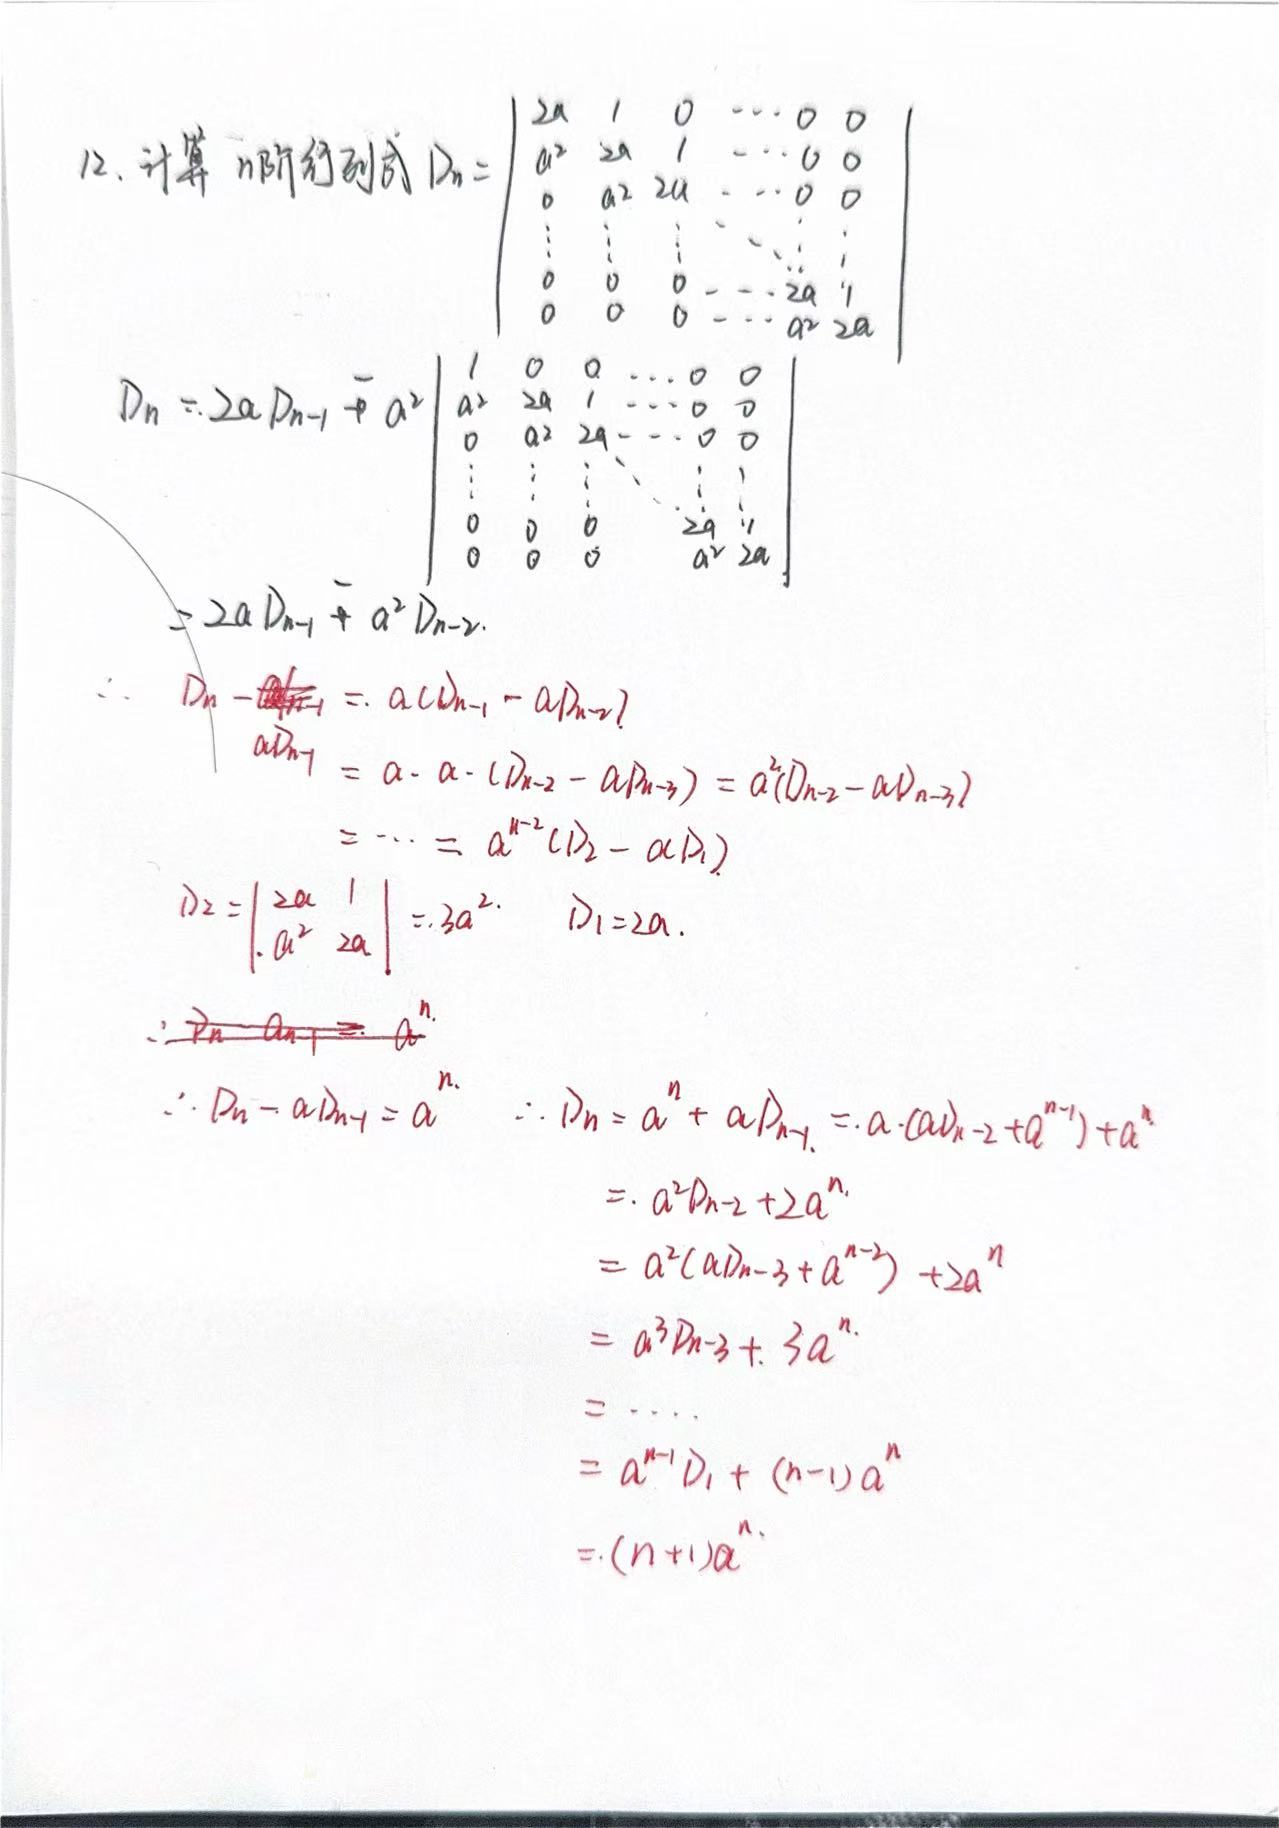 12、计算 n阶行列式 Dn = | 2a 1 0 ... 0 0 |
| a² 2a 1 ... 0 0 |
| 0 a² 2a ... 0 0 |
| ⋮ ⋮ ⋮ ⋱ ⋮ ⋮ |
| 0 0 0 ... 2a 1 |
| 0 0 0 ... a² 2a |
Dn = 2aDn-1 - a² | 1 0 0 ... 0 0 |
| a² 2a 1 ... 0 0 |
| 0 a² 2a ... 0 0 |
| ⋮ ⋮ ⋮ ⋱ ⋮ ⋮ |
| 0 0 0 2a 1 |
| 0 0 0 a² 2a |
= 2aDn-1 - a²Dn-2.
∴ Dn - aDn-1 = a(Dn-1 - aDn-2)
= a·a·(Dn-2 - aDn-3) = a²(Dn-2 - aDn-3)
= ... = aⁿ⁻²(D2 - aD1)
D2 = | 2a 1 | = 3a². D1 = 2a.
| a² 2a |
∴ Dn - an-1 = aⁿ
∴ Dn - aDn-1 = aⁿ ∴ Dn = aⁿ + aDn-1 = a·(aDn-2 + aⁿ⁻¹) + aⁿ
= a²Dn-2 + 2aⁿ
= a²(aDn-3 + aⁿ⁻²) + 2aⁿ
= a³Dn-3 + 3aⁿ
= ....
= aⁿ⁻¹D1 + (n-1)aⁿ
= (n+1)aⁿ